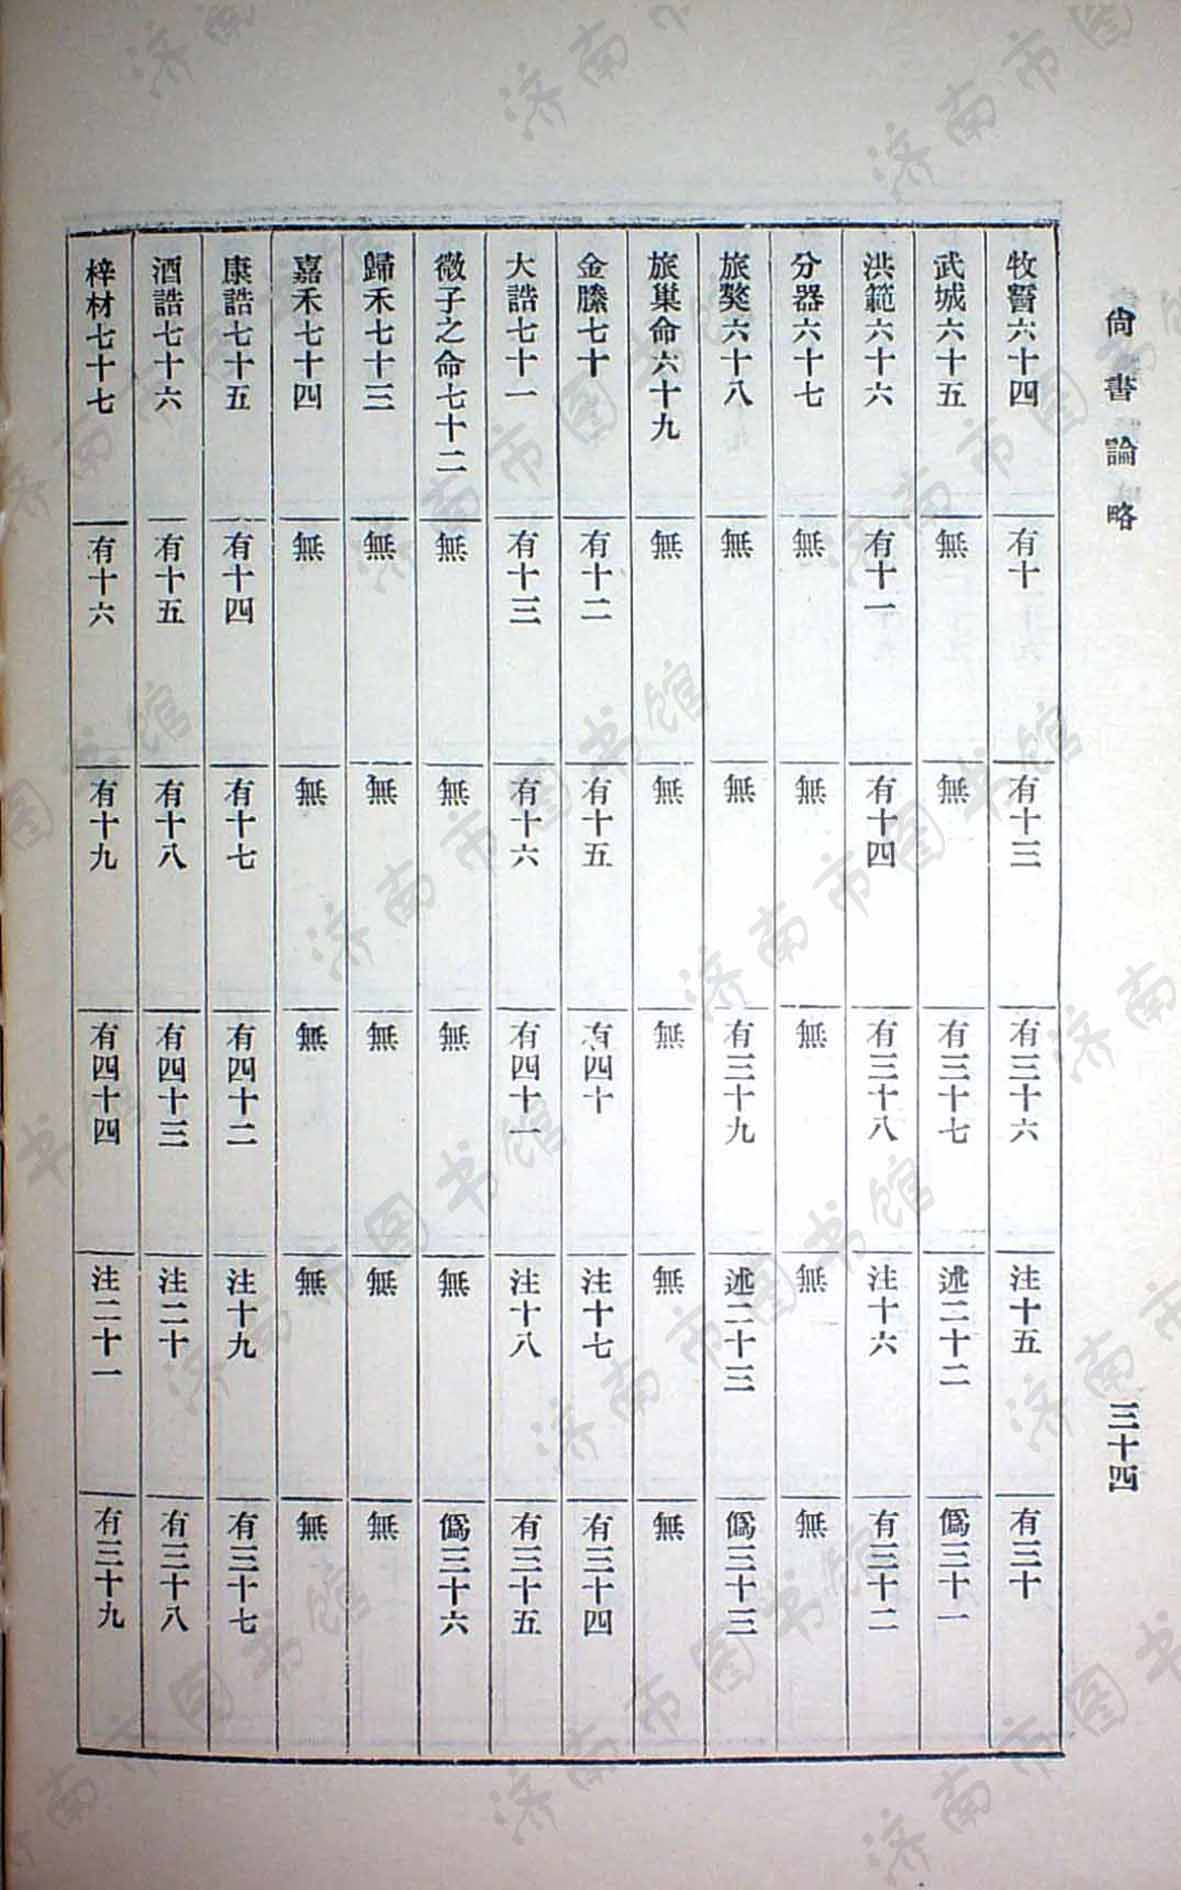 尙書論略
三十四
牧誓六十四 有十 有十三 有三十六 注十五 有三十
武城六十五 無 無 有三十七 述二十二 僞三十一
洪範六十六 有十一 有十四 有三十八 注十六 有三十二
分器六十七 無 無 無 無 無
旅獒六十八 無 無 有三十九 述二十三 僞三十三
旅巢命六十九 無 無 無 無 無
金縢七十 有十二 有十五 有四十 注十七 有三十四
大誥七十一 有十三 有十六 有四十一 注十八 有三十五
微子之命七十二 無 無 無 無 僞三十六
歸禾七十三 無 無 無 無 無
嘉禾七十四 無 無 無 無 無
康誥七十五 有十四 有十七 有四十二 注十九 有三十七
酒誥七十六 有十五 有十八 有四十三 注二十 有三十八
梓材七十七 有十六 有十九 有四十四 注二十一 有三十九
济南市图书馆